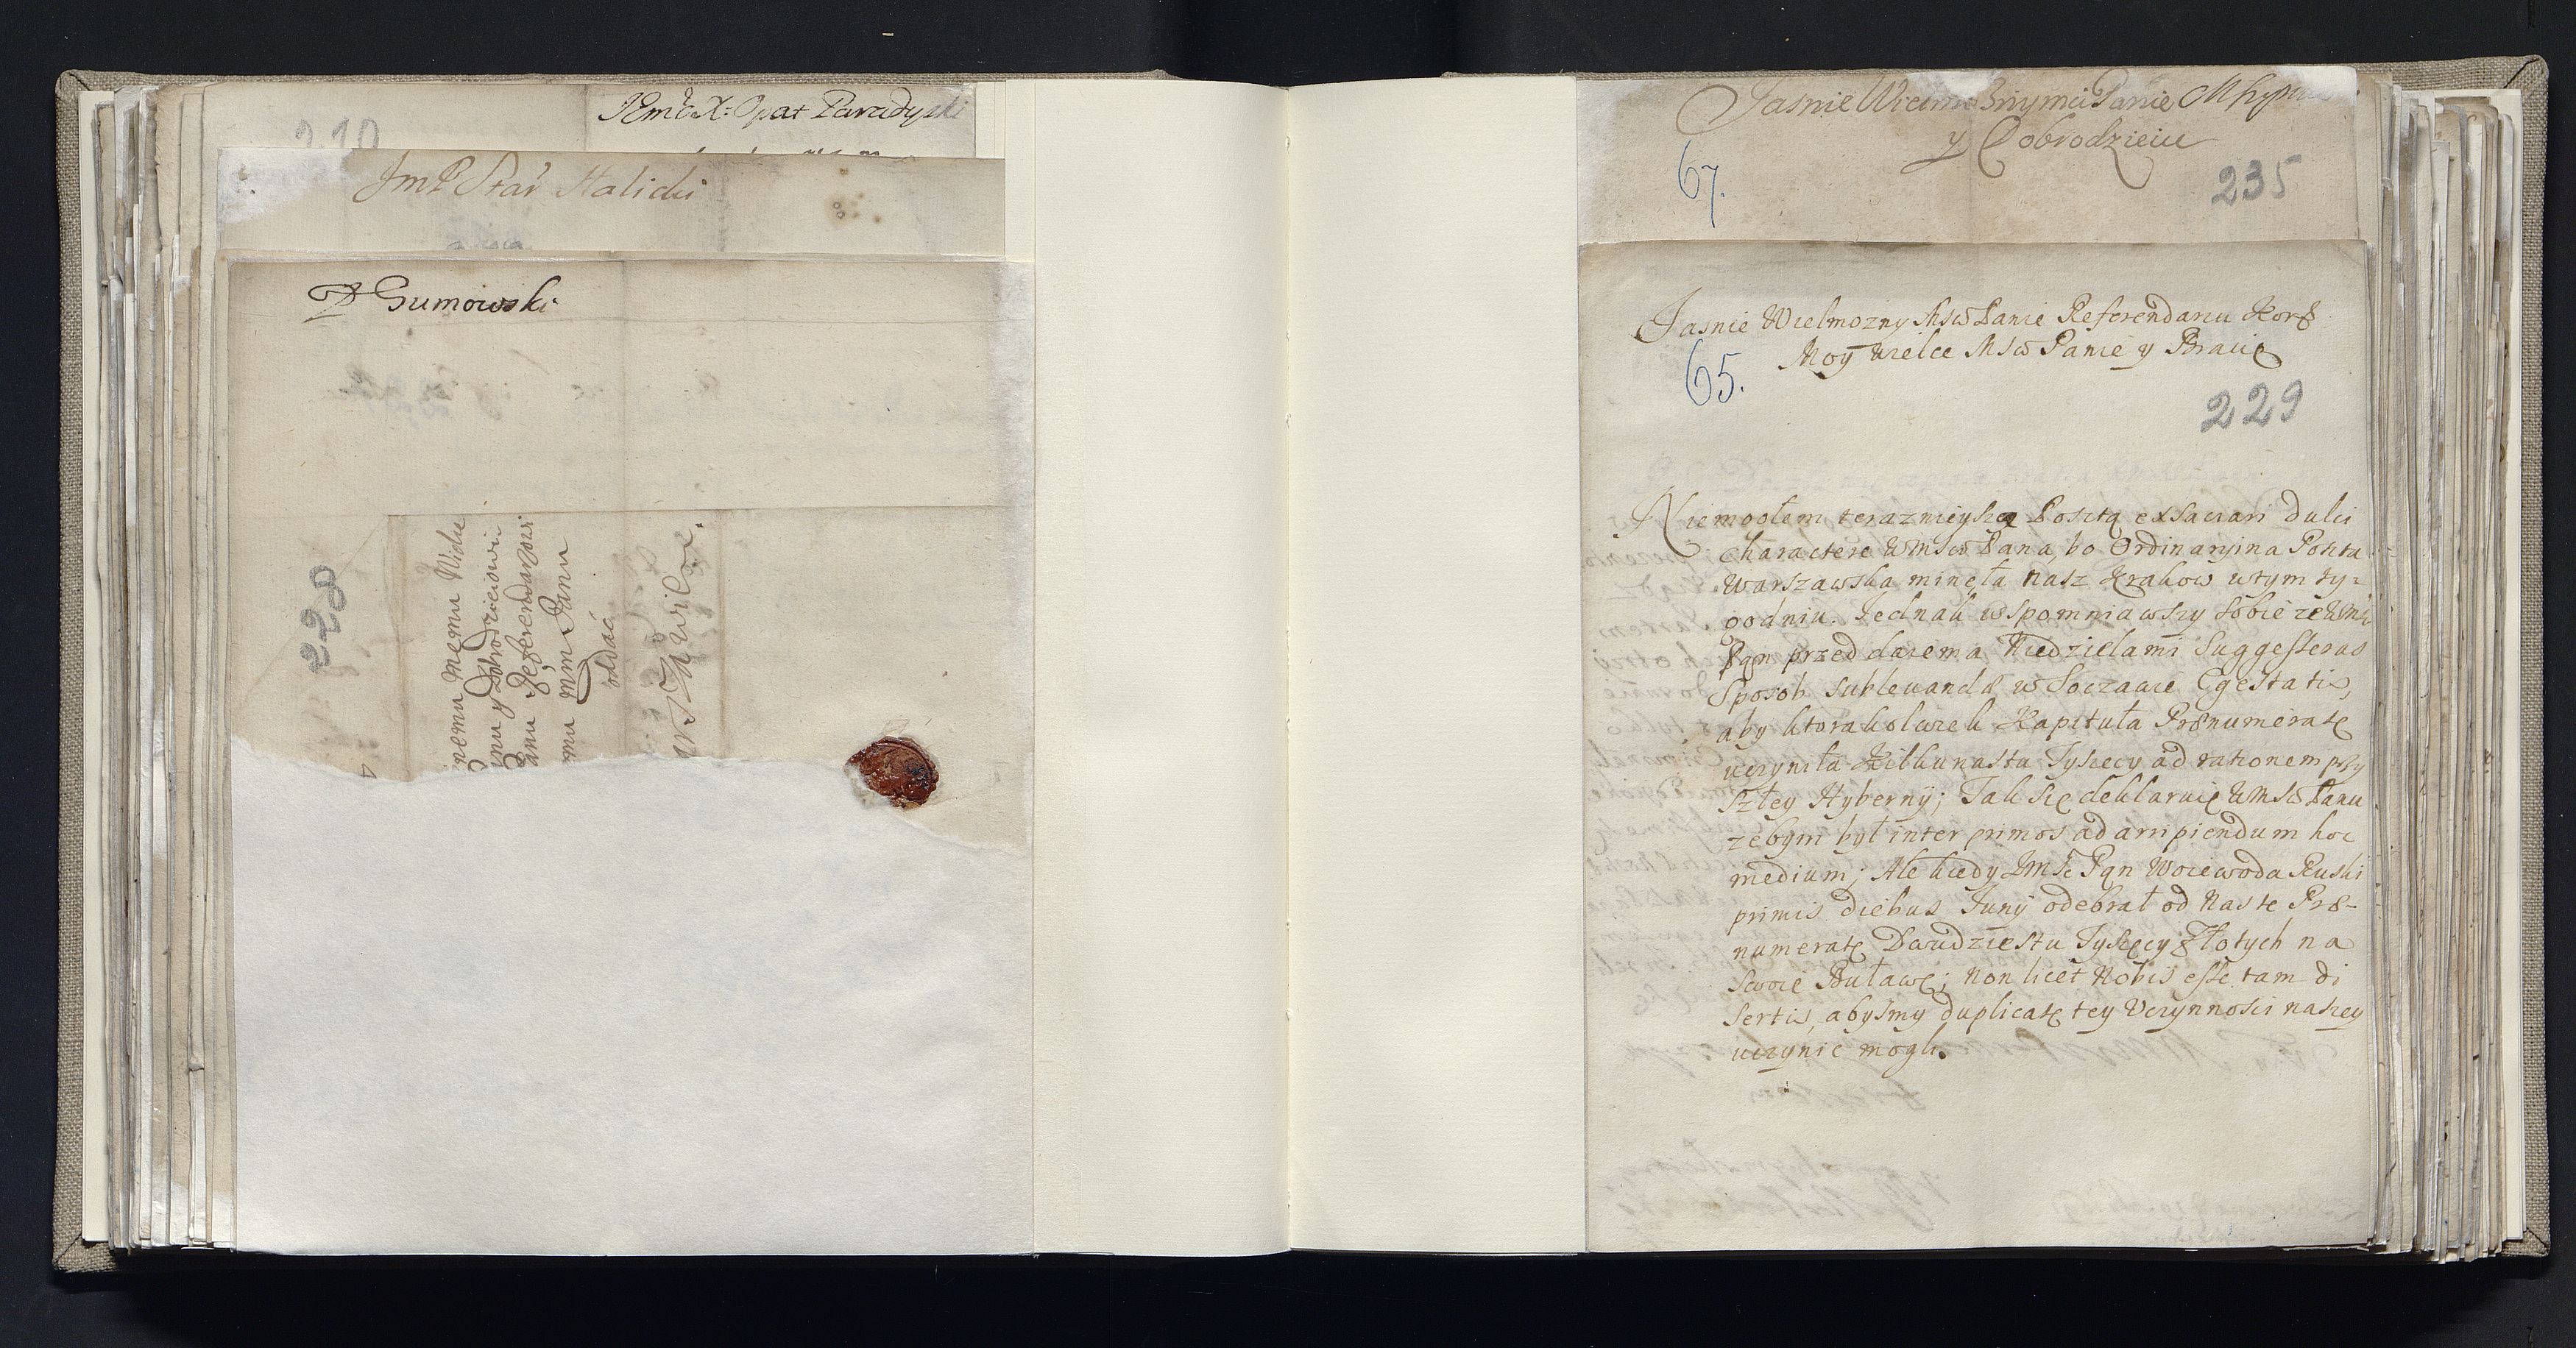 210
JEmć X: Opat Paradyski
JmP Star Halicki
P Gumowski
228
nemu Memu Wielce
Panu y Dobrodzieiowi
Panu Referendarzowi
mu Mm Panu
oddać
Warszawie.
Jasnie Wielmozny mci Panie
y Dobrodzieiu
67.
235
Jasnie Wielmozny MsW Panie Referendariu Kor&
Moy wielce MsW Panie y Bracie
65.
229
Niemogłem teraznieyszą Posztą exsatiari dulci
charactere WMsW Pana, bo Ordinaryina Poszta
Warszawska minęła nasz Krakow wtym ty=
godniu. Jednak wspomniawszy sobie ze WMsW
Pan przed dwiema Niedzielami suggesseras
sposob sublevandæ w Soczawie Egestatis,
aby ktorakolwiek Kapituła Prænumeratę
uczyniła kilkunastu Tysięcy ad rationem przy
szłey Hyberny; Tak się deklaruię WMsW Panu
zebym był inter primos ad arripiendum hoc
medium; Ale kiedy JmSc Pan Woiewoda Ruski
primis diebus Juny odebrał od Nas te Præ-
numeratę Dwudziestu Tysięcy Złotych na
swoię Buławę; non licet Nobis esse tam di
sertis, abysmy duplicatę tey Uczynnosci naszey
uczynic mogli.